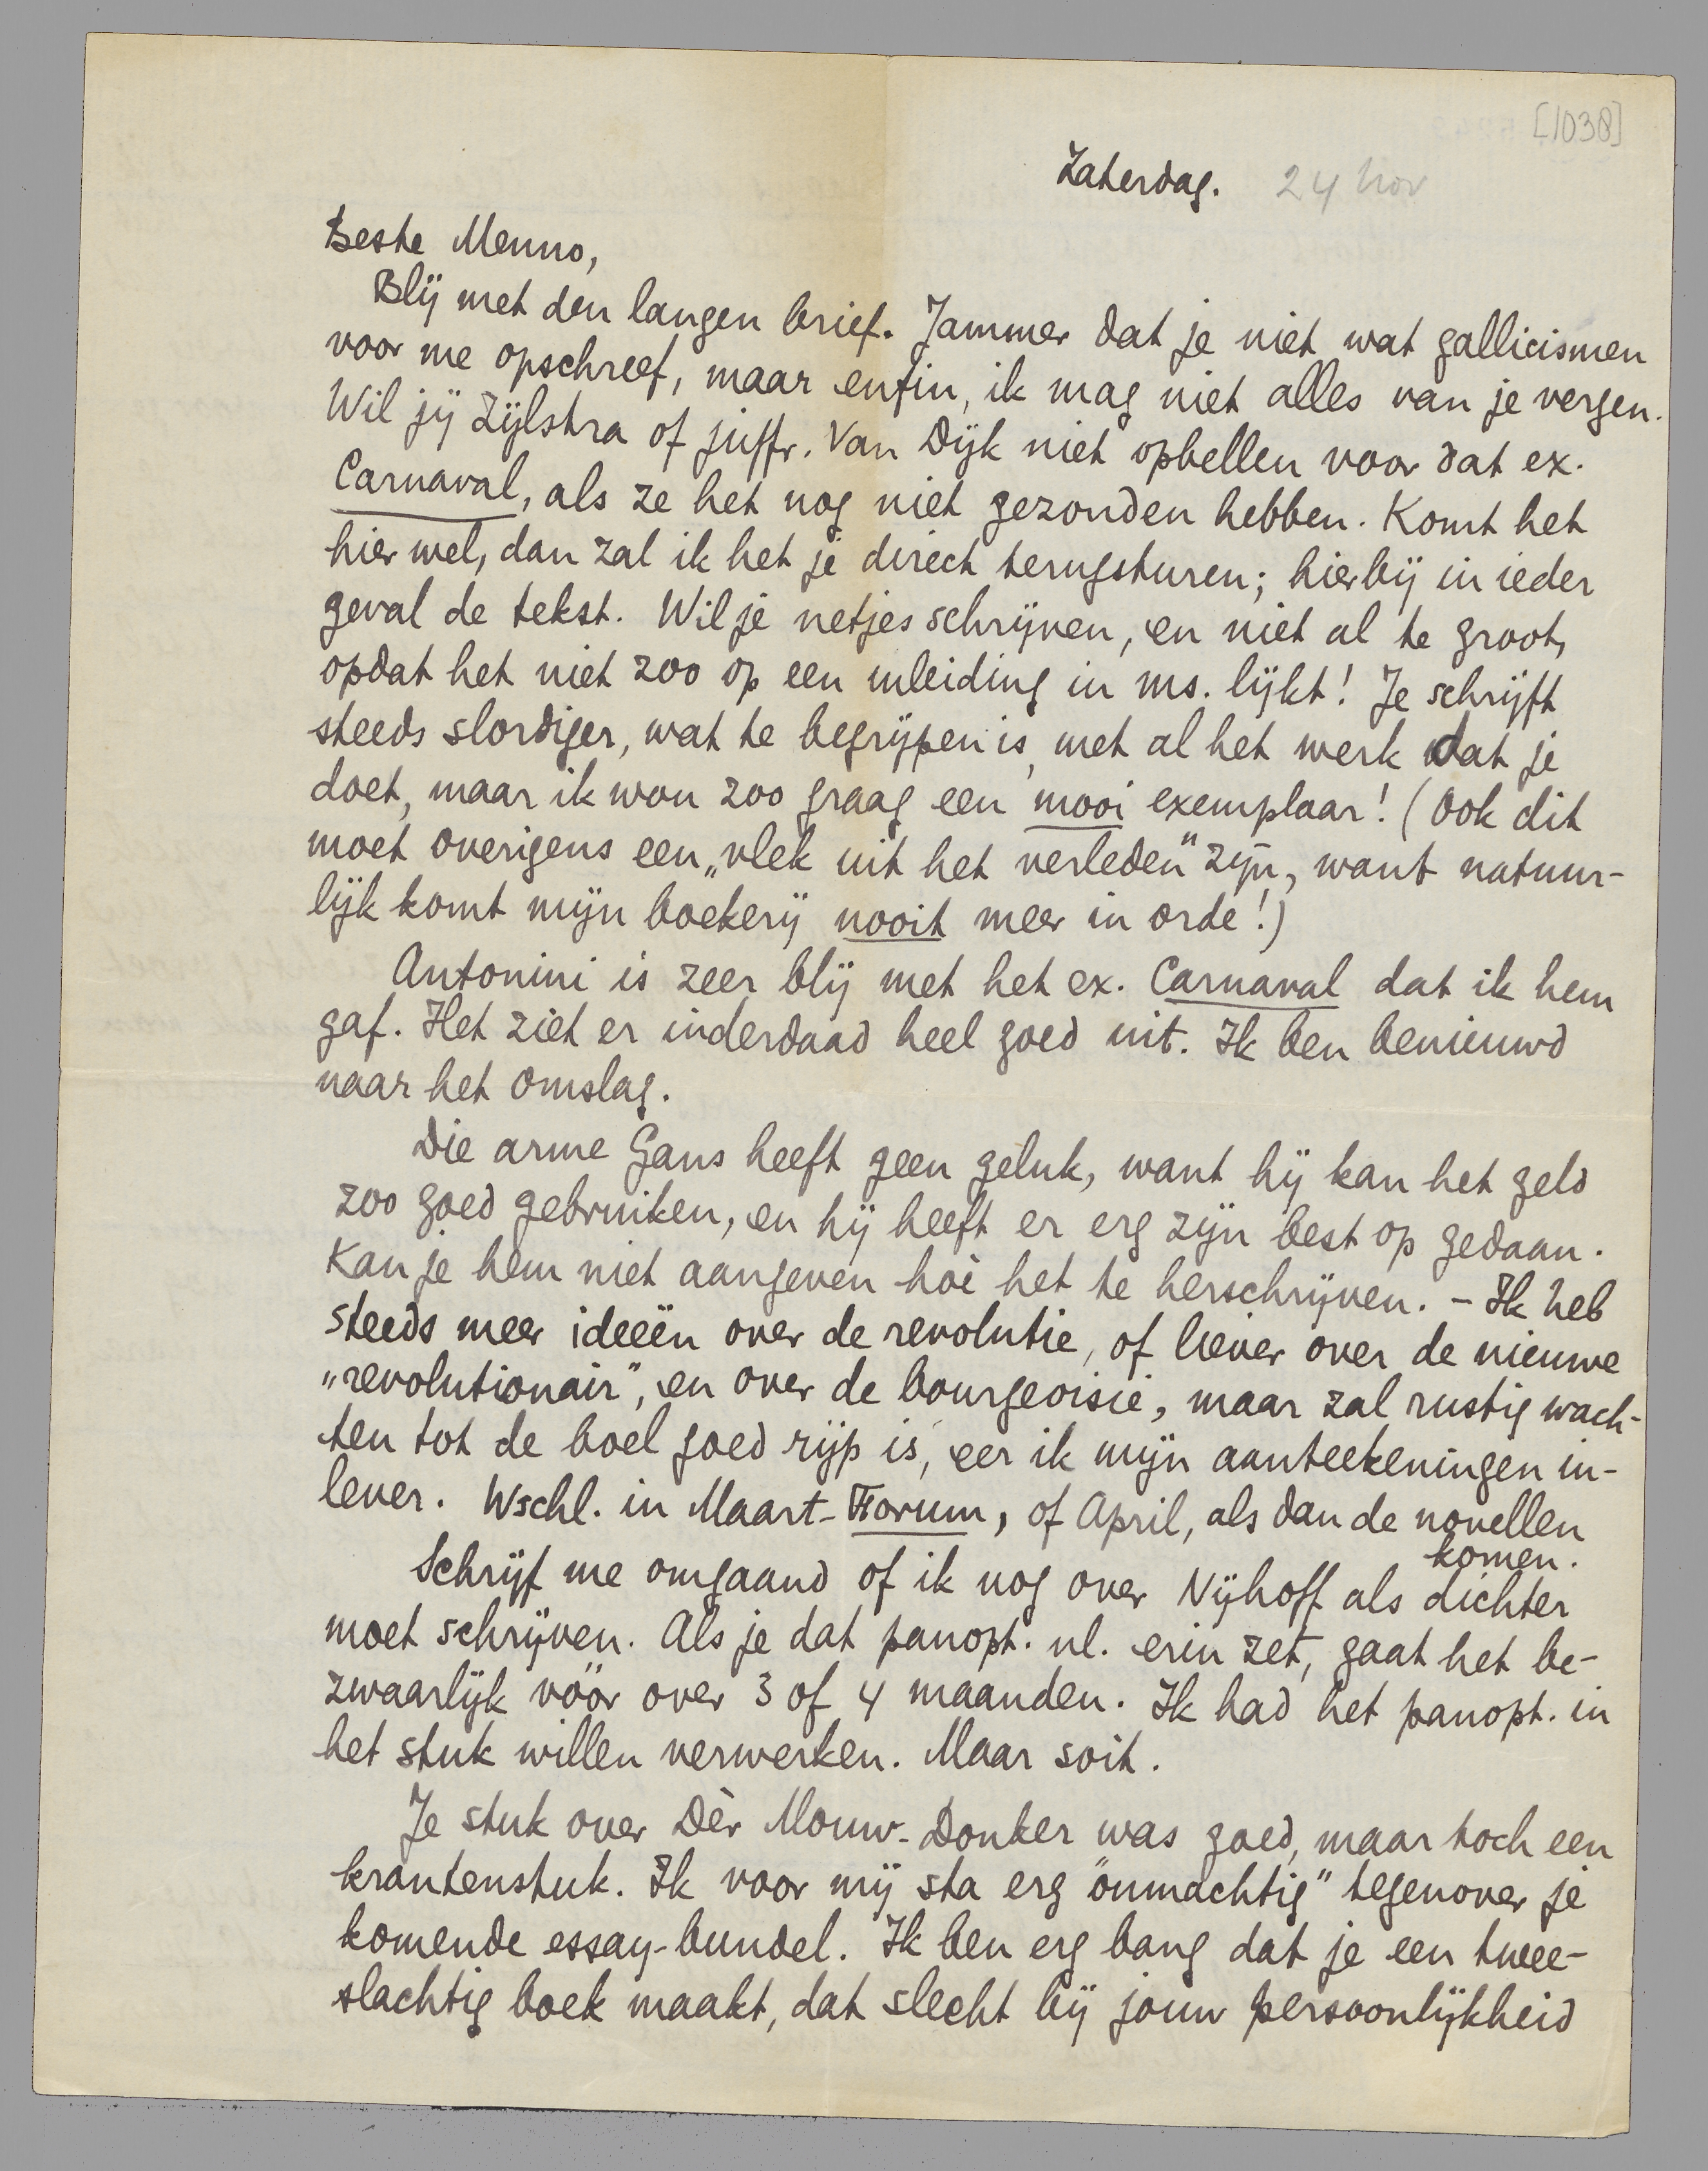 [1038]
Zaterdag. 24 Nov
Beste Menno,
Blij met den langen brief. Jammer dat je niet wat gallicismen
voor me opschreef, maar enfin, ik mag niet alles van je vergen.
Wil jij Zijlstra of juffr. Van Dijk niet opbellen voor dat ex.
Carnaval, als ze het nog niet gezonden hebben. Komt het
hier wel, dan zal ik het je direct terugsturen; hierbij in ieder
geval de tekst. Wil je netjes schrijven, en niet al te groot,
opdat het niet zoo op een inleiding in ms. lijkt! Je schrijft
steeds slordiger, wat te begrijpen is, met al het werk dat je
doet, maar ik wou zoo graag een mooi exemplaar! (Ook dit
moet overigens een „vlek uit het verleden" zijn, want natuur-
lijk komt mijn boekerij nooit meer in orde!)
Antonini is zeer blij met het ex. Carnaval dat ik hem
gaf. Het ziet er inderdaad heel goed uit. Ik ben benieuwd
naar het omslag.
Die arme Gans heeft geen geluk, want hij kan het geld
zoo goed gebruiken, en hij heeft er erg zijn best op gedaan.
Kan je hem niet aangeven hoe het te herschrijven. – Ik heb
steeds meer ideeën over de revolutie, of liever over de nieuwe
„revolutionair", en over de bourgeoisie, maar zal rustig wach-
ten tot de boel goed rijp is, eer ik mijn aanteekeningen in-
lever. Wschl. in Maart-Forum, of April, als dan de novellen
komen.
Schrijf me omgaand of ik nog over Nijhoff als dichter
moet schrijven. Als je dat panopt. nl. erin zet, gaat het be-
zwaarlijk vóór over 3 of 4 maanden. Ik had het panopt. in
het stuk willen verwerken. Maar soit.
Je stuk over Dèr Mouw-Donker was goed, maar toch een
krantenstuk. Ik voor mij sta erg "onmachtig" tegenover je
komende essay-bundel. Ik ben erg bang dat je een twee-
slachtig boek maakt, dat slecht bij jouw persoonlijkheid